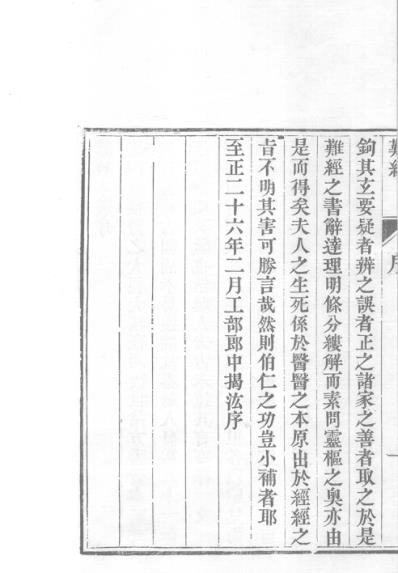 難經
序
一
鉤其玄要疑者辨之誤者正之諸家之善者取之於是
難經之書辭達理明條分縷解而素問靈樞之奧亦由
是而得矣夫人之生死係於醫醫之本原出於經經之
旨不明其害可勝言哉然則伯仁之功豈小補者耶
至正二十六年二月工部郎中揭汯序